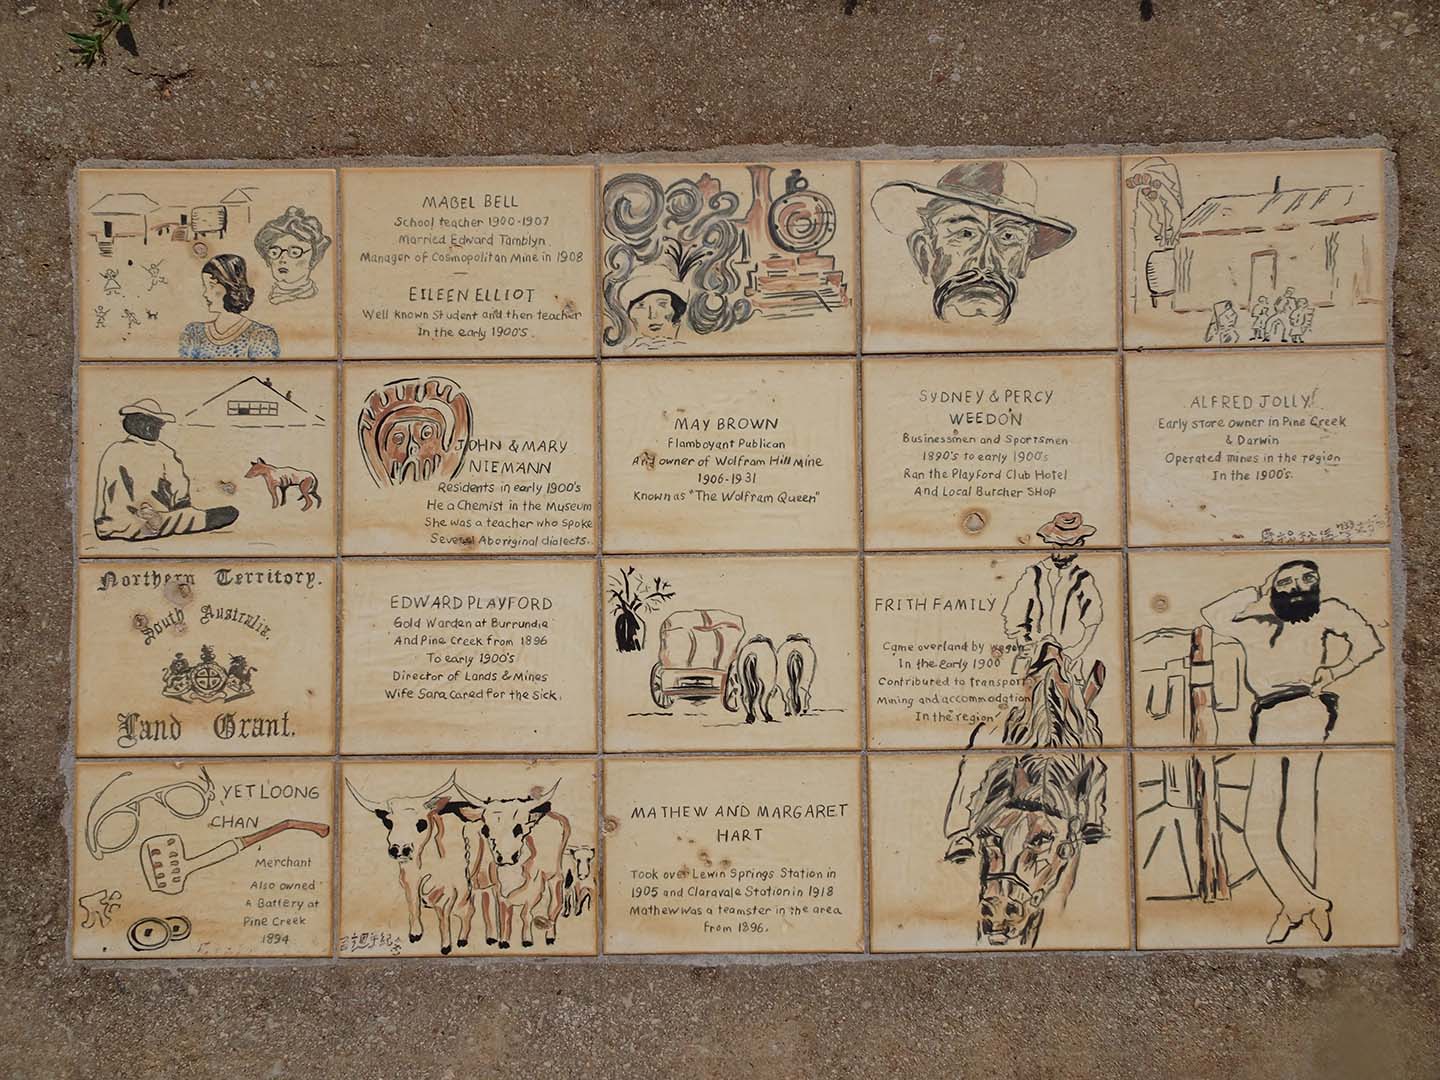 MABEL BELL
School teacher 1900-1907
Married Edward Tamblyn
Manager of Cosmopolitan Mine in 1908
EILEEN ELLIOT
Well known student and then teacher
In the early 1900's.
JOHN & MARY
NIEMANN
Residents in early 1900's
He a Chemist in the Museum
She was a teacher who spoke
Several Aboriginal dialects.
MAY BROWN
Flamboyant Publican
And owner of Wolfram Hill Mine
1906-1931
Known as "The Wolfram Queen"
SYDNEY & PERCY
WEEDON
Businessmen and Sportsmen
1890's to early 1900's
Ran the Playford Club Hotel
And Local Butcher Shop
ALFRED JOLLY
Early store owner in Pine Creek
& Darwin
Operated mines in the region
In the 1900's.
Northern Territory.
South Australia.
Land Grant.
EDWARD PLAYFORD
Gold Warden at Burrundie
And Pine Creek from 1896
To early 1900's
Director of Lands & Mines
Wife Sara Cared for the Sick.
FRITH FAMILY
Came overland by wagon
In the early 1900
Contributed to transport
Mining and accommodation
In the region
YET LOONG
CHAN
Merchant
Also owned
A Battery at
Pine Creek
1894
MATHEW AND MARGARET
HART
Took over Lewin Springs Station in
1905 and Claravale Station in 1918
Mathew was a teamster in the area
from 1896.